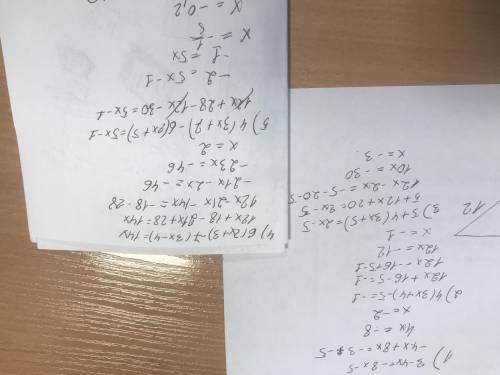 1) 3-4x=-8x-5
-4x+8x=-3-5
4x=-8
x=-2
2) 4(3x+4)-5=-1
12x+16-5=-1
12x=-16+5-1
12x=-12
x=-1
3) 5+4(3x+5)=2x-5
5+12x+20=2x-5
12x-2x=-5-20-5
10x=-30
x=-3
12
4) 6(2x+3)-7(3x-4)=14x
12x+18-21x+28=14x
12x-21x-14x=-18-28
-21x-2x=-46
-23x=-46
x=2
5) 4(3x+7)-6(2x+5)=5x-1
12x+28-12x-30=5x-1
-2=5x-1
-1=5x
x=-1/5
x=-0,2